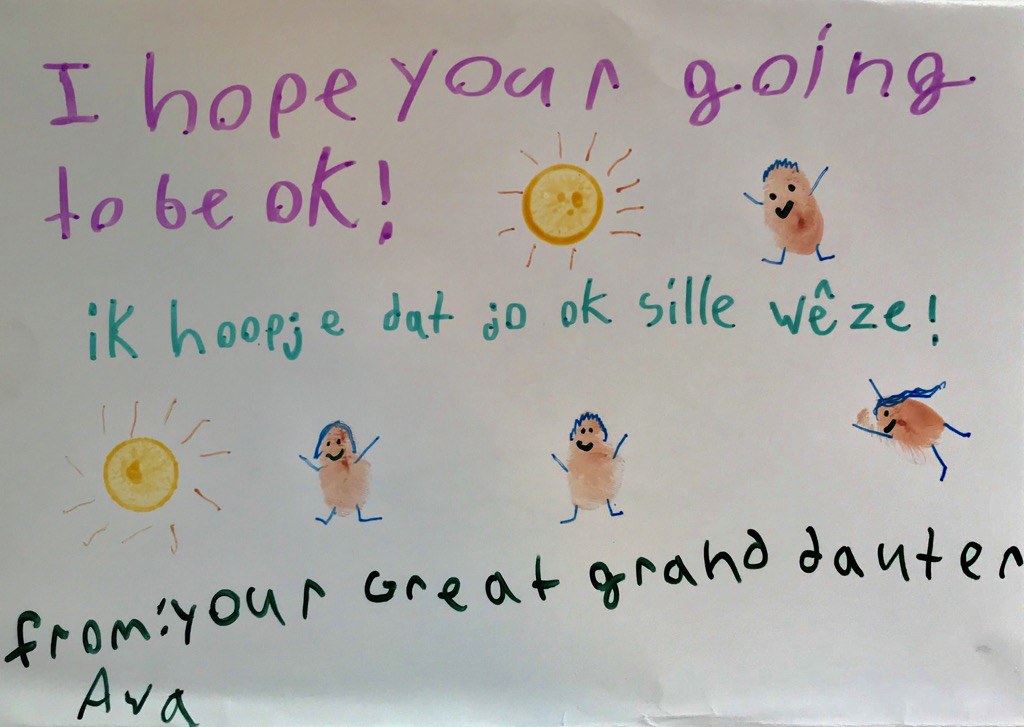 I hope your going
to be oK!
ik hoopje dat jo ok sille wêze!
from: your Great grand dauter
Ava